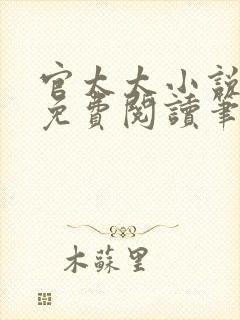 官太太小說
免費閱讀筆
木蘇里